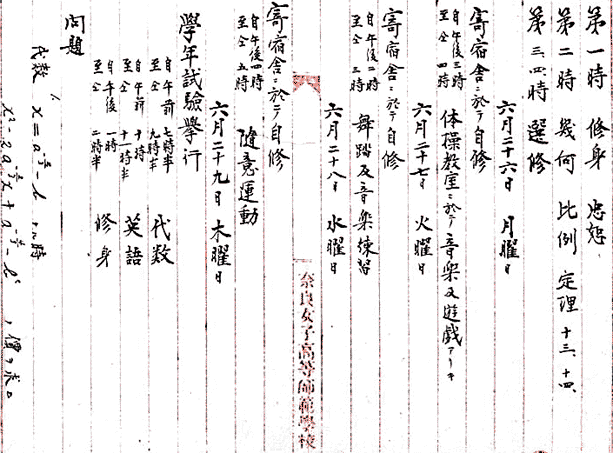 第一時 修身 忠恕
第二時 幾何 比例 定理 十三、十四、
第三、四時 選修
六月二十六日 月曜日
寄宿舎ニ於テ自修
自午後三時
至仝 四時
体操教室ニ於テ音楽及遊戯アリキ
六月二十七日 火曜日
寄宿舎ニ於テ自修
自午後二時
至仝 三時
舞踏及音楽練習
六月二十八日 水曜日
奈良女子高等師範學校
寄宿舎ニ於テ自修
自午後四時
至仝 五時
随意運動
六月二十九日 木曜日
學年試驗擧行
自午前 七時半
至仝 九時半
代数
自午前 十時
至仝 十一時半
英語
自午後 一時
至仝 二時半
修身
問題
代数